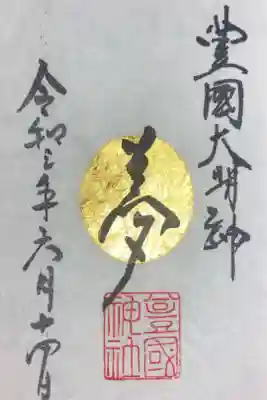 豊國大明神
夢
豊國神社
令和三年六月十四日